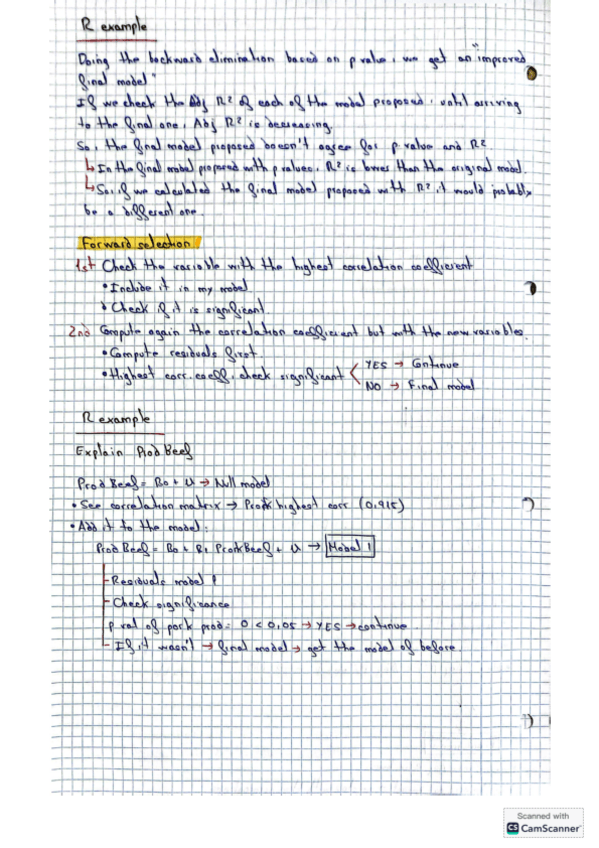 R example
Doing the backward elimination based on p value, we get an "improved
final model"
If we check the Adj R² of each of the model proposed, until arriving
to the final one, Adj R² is decreasing.
So, the final model proposed doesn't agree for p value and R².
↳ In the final model proposed with p values, R² is lower than the original model.
↳ So, if we calculated the final model proposed with R², it would probably
be a different one.
Forward selection
1st Check the variable with the highest correlation coefficient
• Include it in my model
• Check if it is significant.
2nd Compute again the correlation coefficient but with the new variables.
• Compute residuals first.
• Highest corr. coeff, check significant < YES → Continue
NO → Final model
R example
Explain Prod Beef
Prod Beef = B0 + U → Null model
• See correlation matrix → highest corr (0,915)
• Add it to the model:
Prod Beef = B0 + B1 + U → Model 1
- Residuals model 1
- Check significance
p val of pork prod = 0 < 0,05 → YES → continue
- If it wasn't → final model → get the model of before
Scanned with
CS CamScanner